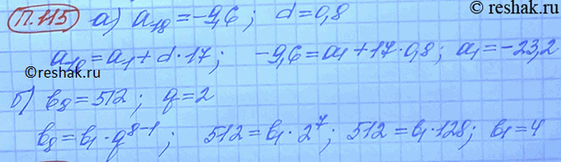 П.115 а) a₁₈ = -9,6; d = 0,8
a₁₈ = a₁ + d · 17; -9,6 = a₁ + 17 · 0,8; a₁ = -23,2
б) b₈ = 512; q = 2
b₈ = b₁ · q⁸⁻¹; 512 = b₁ · 2⁷; 512 = b₁ · 128; b₁ = 4